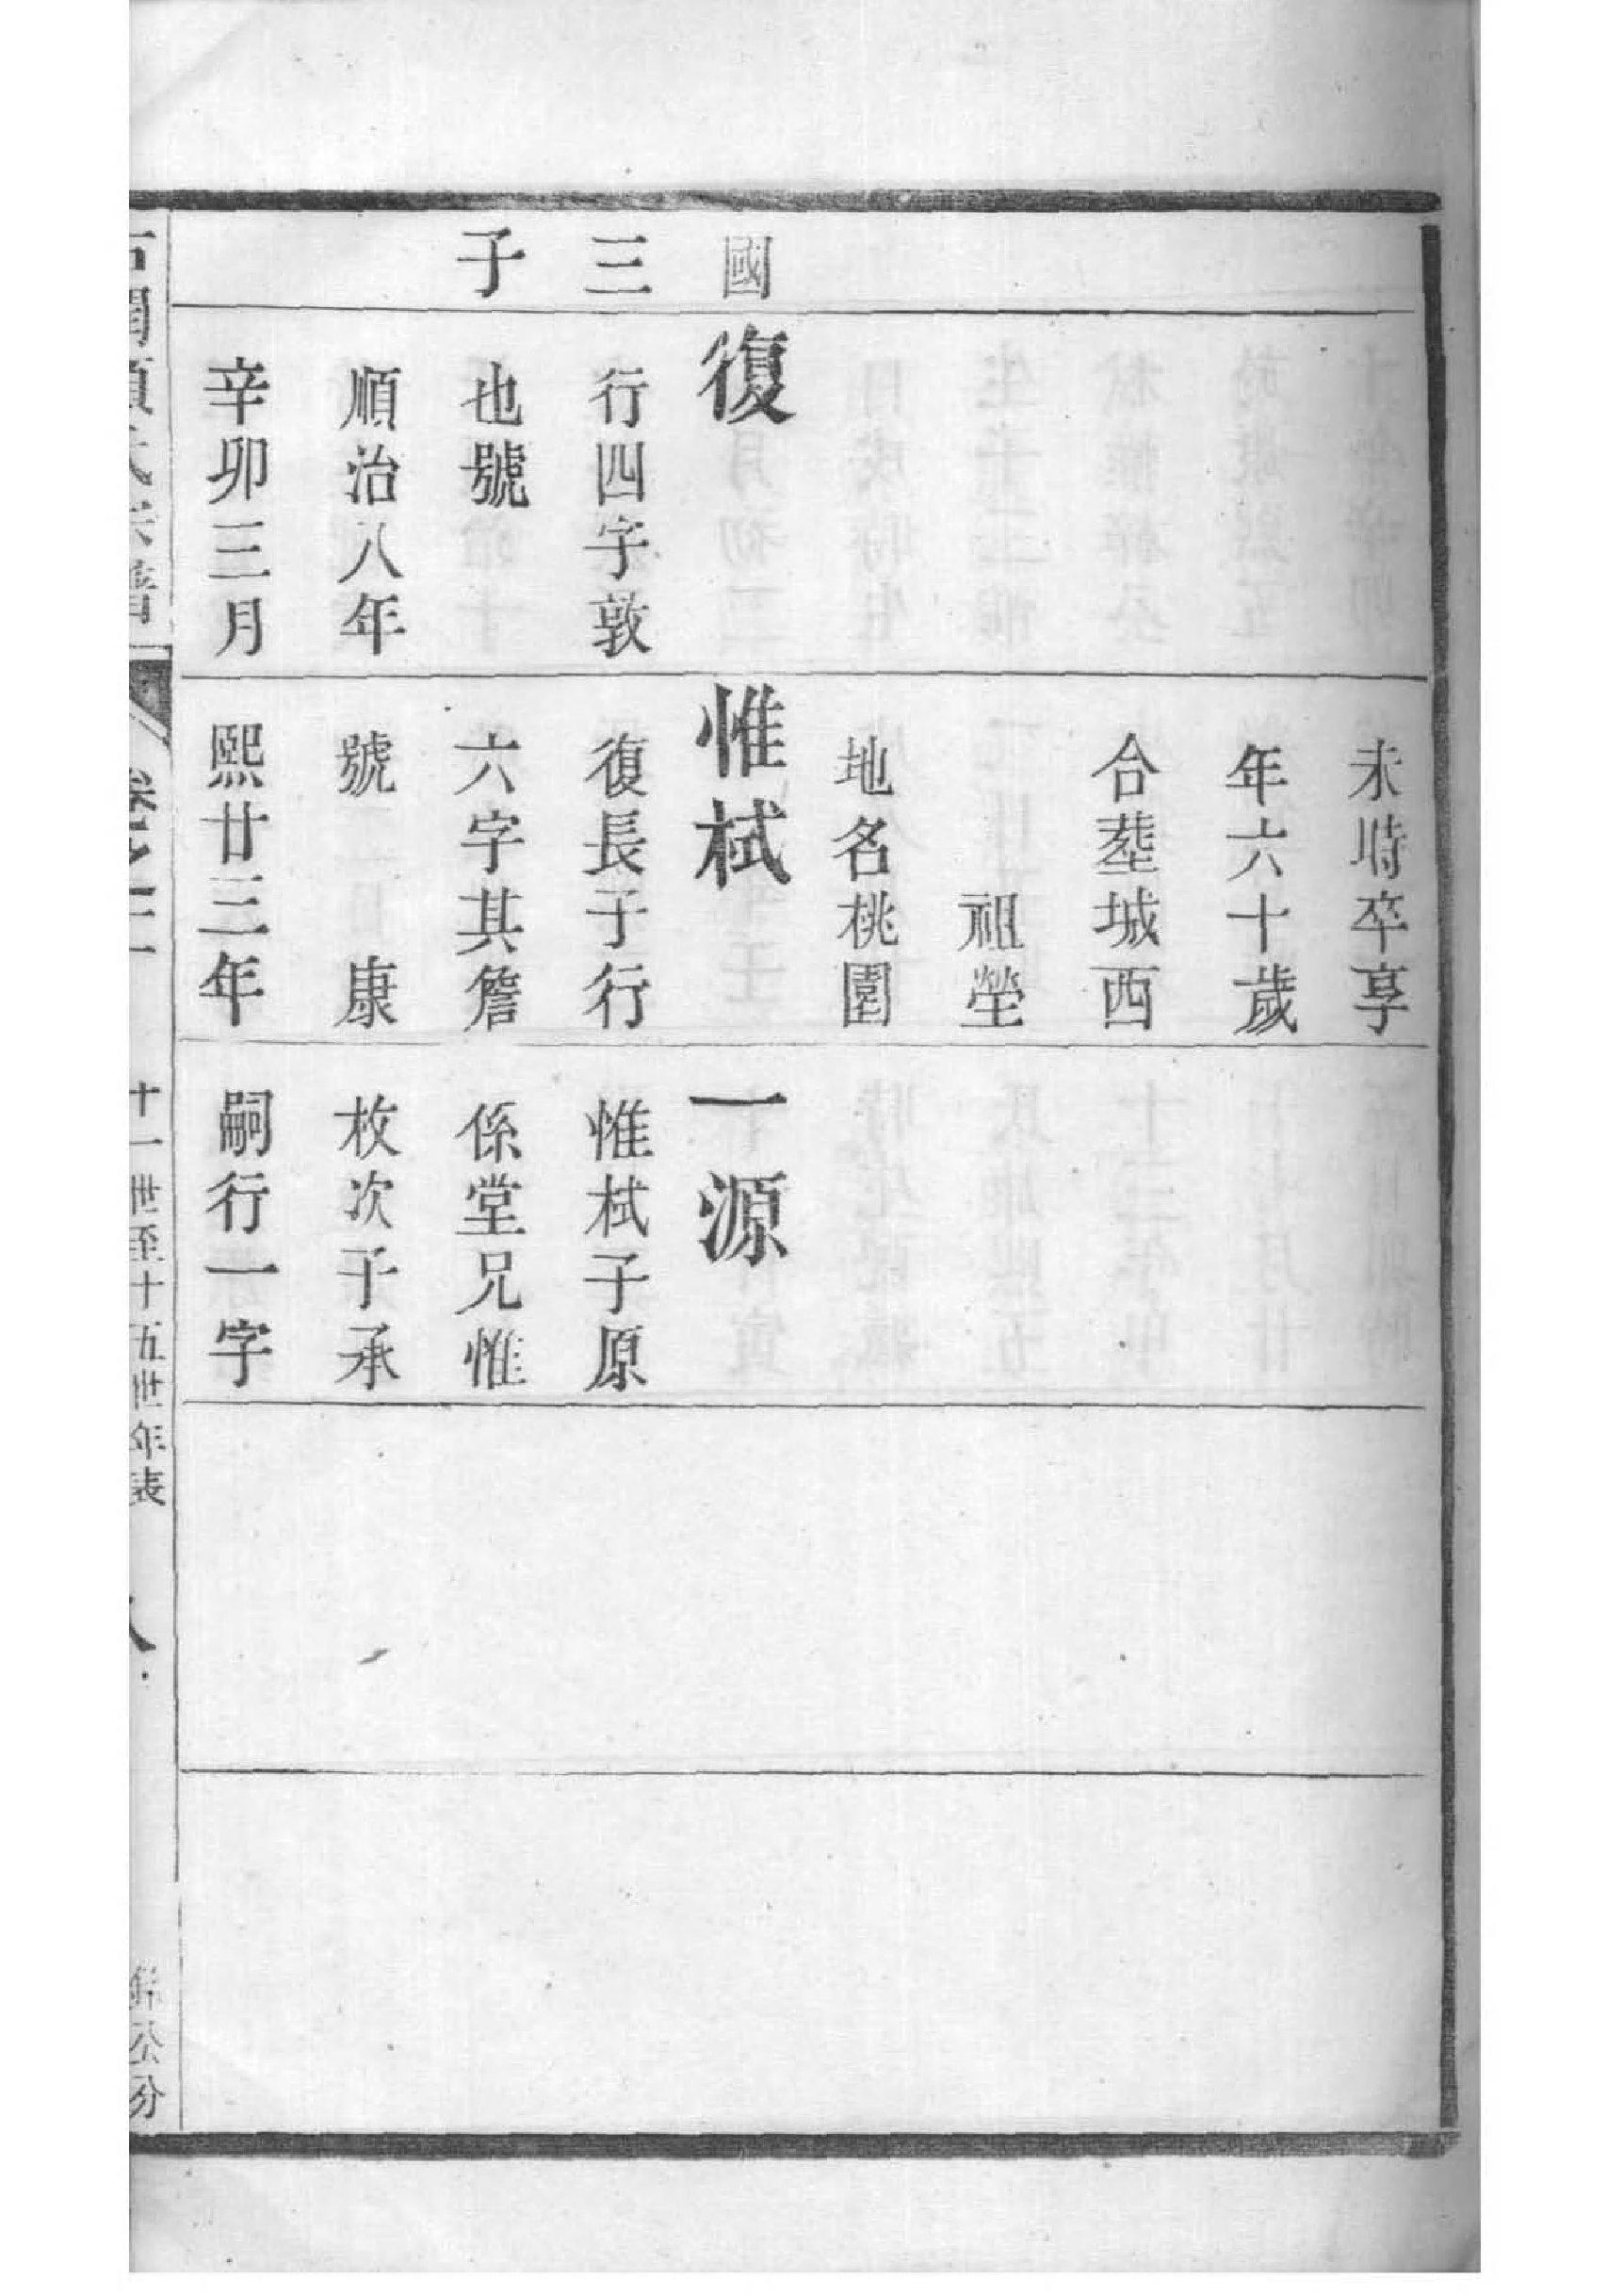 國
三
子
復
行四字敦
也號
順治八年
辛卯三月
未時卒享
年六十歲
合塟城西
祖塋
地名桃園
惟栻
復長子行
六字其詹
號 康
熙廿三年
一源
惟栻子原
係堂兄惟
枚次子承
嗣行一字
十一世至十五世年表
公分